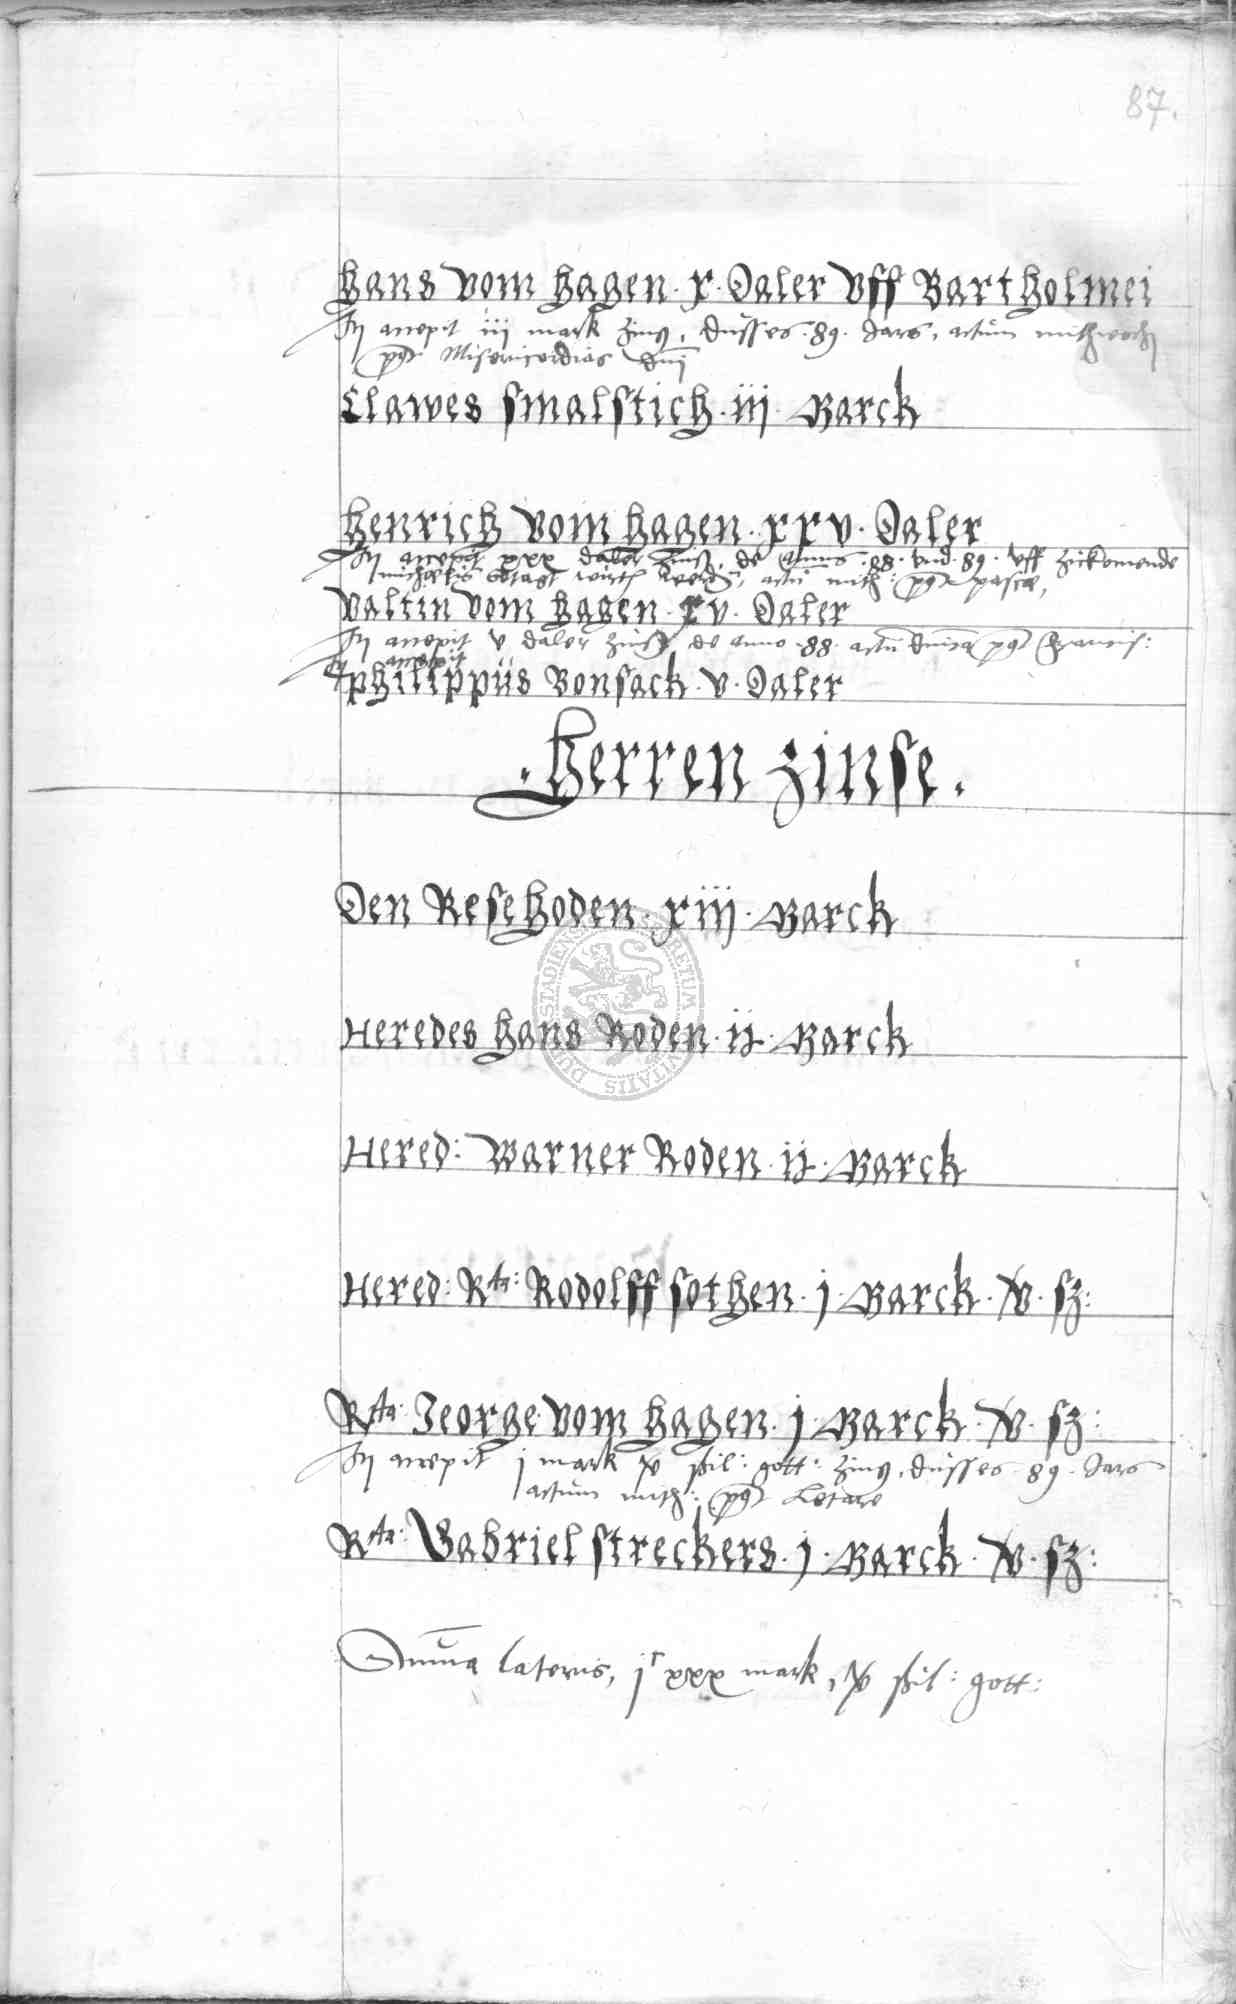 87.
Hans vom Hagen · x · Daler Vff Bartholmei
accepit iii mark zins, düsses · 89 · Jars, actum mithwoch
post Misericordias dni
Clawes smalstich · iij · Marck
Henrich vom Hagen · xxv · Daler
accepit xxx daler zinß, de annis · 88 · vnd · 89 · vff zickomende
michaelis betagt wirth, actu mith: post pasce,
Valtin vom Hagen · xv · Daler
accepit v daler zinß, de anno · 88 · actu dnica post Francis:
accepit
Philippüs Bonsack · v · Daler
· Herren zinse ·
Den Resehoden · xiij · Marck
Heredes Hans Roden · ij · Marck
Hered: Warner Roden · ij · Marck
Hered: Rta: Rodolff sothen · j · Marck · v · sz:
Rta: Jeorge vom Hagen · j · Marck · v · sz:
accepit j mark v ßil: gott: zins, düsses · 89 · Jars
actum mith: post Letare
Rta: Gabriel streckers · j · Marck · v · sz:
Summa lateris, j xxx mark, v ßil: gott: